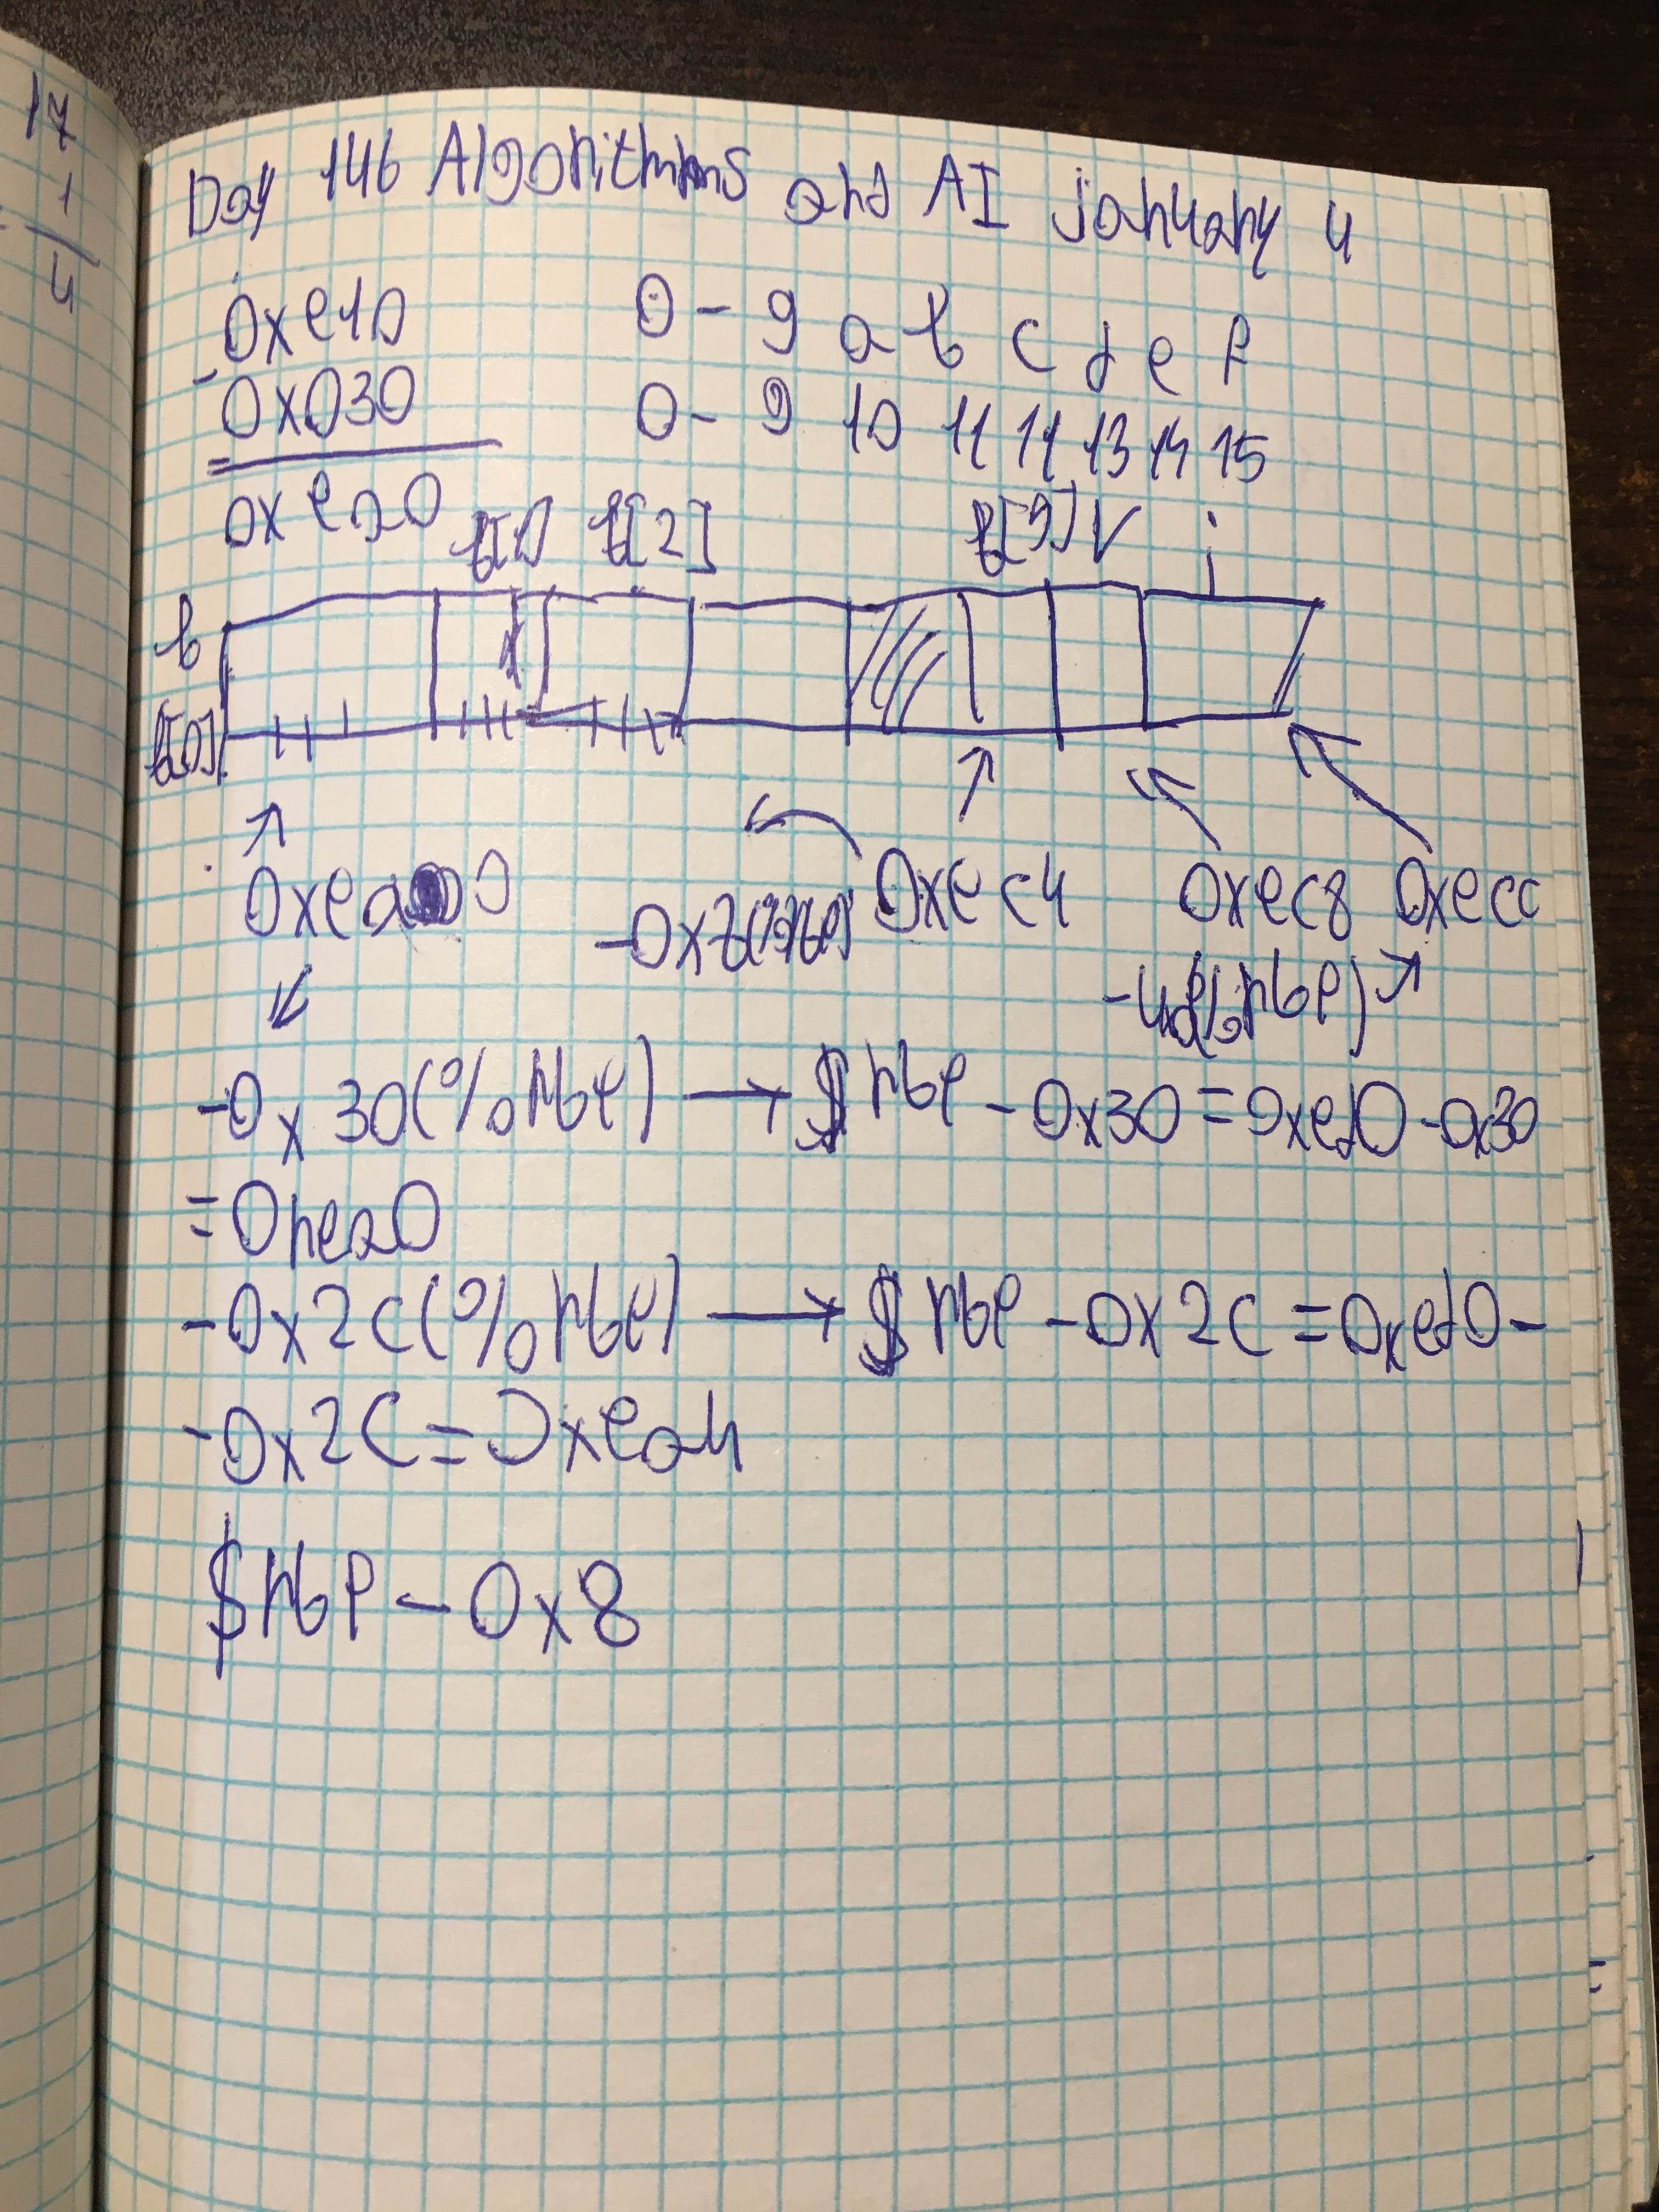 17
1
4
Day 146 Algorithms and AI january 4
0xed0 0 - 9 a b c d e f
- 0x030 0 - 9 10 11 11 13 14 15
0xea0 b[1] b[2] b[9] V i
b
b[0]
0xea0 0xec4 0xec8 0xecc
-4(%rbp)
-0x30(%rbp) → $rbp - 0x30 = 0xed0 - 0x30
= 0xea0
-0x2c(%rbp) → $rbp - 0x2c = 0xed0 -
- 0x2c = 0xea4
$rbp - 0x8